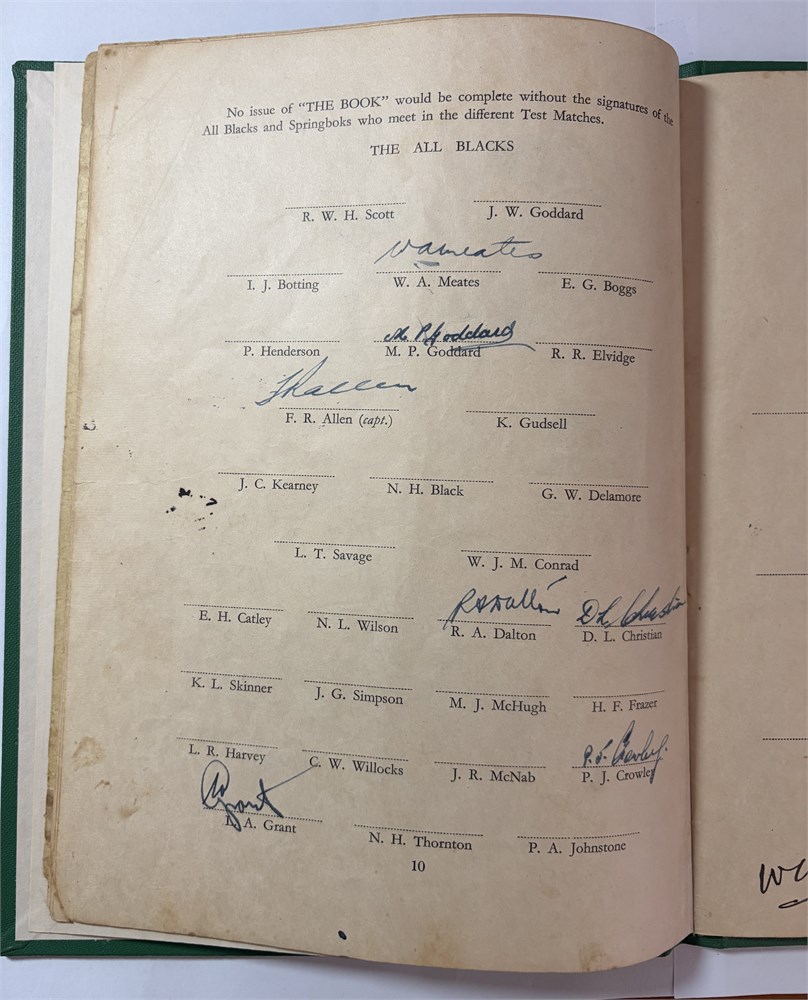 No issue of "THE BOOK" would be complete without the signatures of the
All Blacks and Springboks who meet in the different Test Matches.
THE ALL BLACKS
R. W. H. Scott J. W. Goddard
WAMeates
I. J. Botting W. A. Meates E. G. Boggs
M. P. Goddard
P. Henderson M. P. Goddard R. R. Elvidge
FRAllen
F. R. Allen (capt.) K. Gudsell
J. C. Kearney N. H. Black G. W. Delamore
L. T. Savage W. J. M. Conrad
RADalton D L Christian
E. H. Catley N. L. Wilson R. A. Dalton D. L. Christian
K. L. Skinner J. G. Simpson M. J. McHugh H. F. Frazer
P. J. Crowley
L. R. Harvey C. W. Willocks J. R. McNab P. J. Crowley
Grant
L. A. Grant N. H. Thornton P. A. Johnstone
10